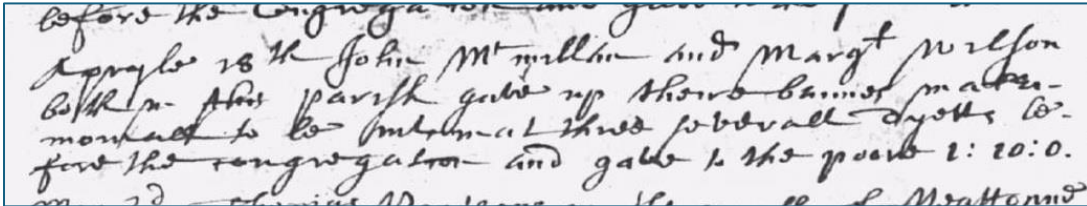 before the Congregation and gave to the poore
Apryle 18th John Mcmillan and Margt Wilson
both in this parish gave up theire bannes matri-
moniall to be intimat three severall dyetts be-
fore the congregation and gave to the poore 1: 10:0.